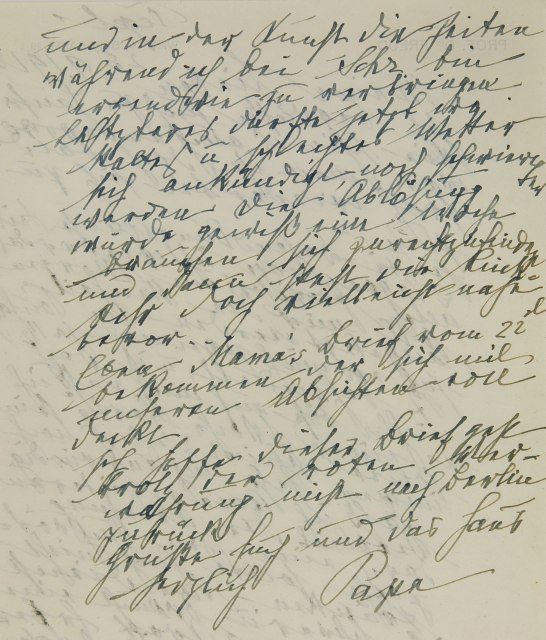 und in der Kunst die Zeiten
während ich bei Schz bin
irgendwie zu verbringen
letzteres dürfte jetzt wo
kaltes u schlechtes Wetter
sich ankündigt noch schwieriger
werden Die Ablösung der
würde gewiß eine Woche
brauchen sich zurechtzufinden
und dann steht die Rück
kehr doch vielleicht nahe
bevor.
Mama's Brief vom 22
bekommen der sich mit
unseren Absichten voll
deckt
Ich hoffe dieser Brief geht
trotz der roten
nicht nach Berlin
zurück
Grüße Euch und das Haus
herzlich Papa